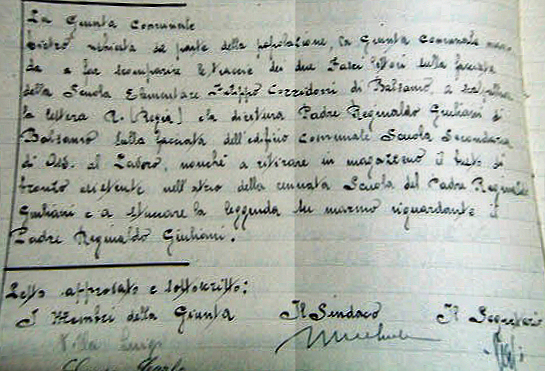 La Giunta Comunale
dietro richiesta da parte della popolazione, la Giunta Comunale man
da a far scomparire le tracce dei due Fasci littori sulla facciata
della Scuola Elementare Filippo Corridoni di Balsamo, a scalpellare
la lettera R. (Regia) e la dicitura Padre Reginaldo Giuliani di
Balsamo sulla facciata dell'edificio comunale Scuola Secondaria
di Avv. al Lavoro, nonché a ritirare in magazzeno il busto di
bronzo esistente nell'atrio della cennata Scuola del Padre Reginaldo
Giuliani e a stuccare la leggenda su marmo riguardante il
Padre Reginaldo Giuliani.
Letto approvato e sottoscritto:
I Membri della Giunta Il Sindaco Il Segretario
Villa Luigi